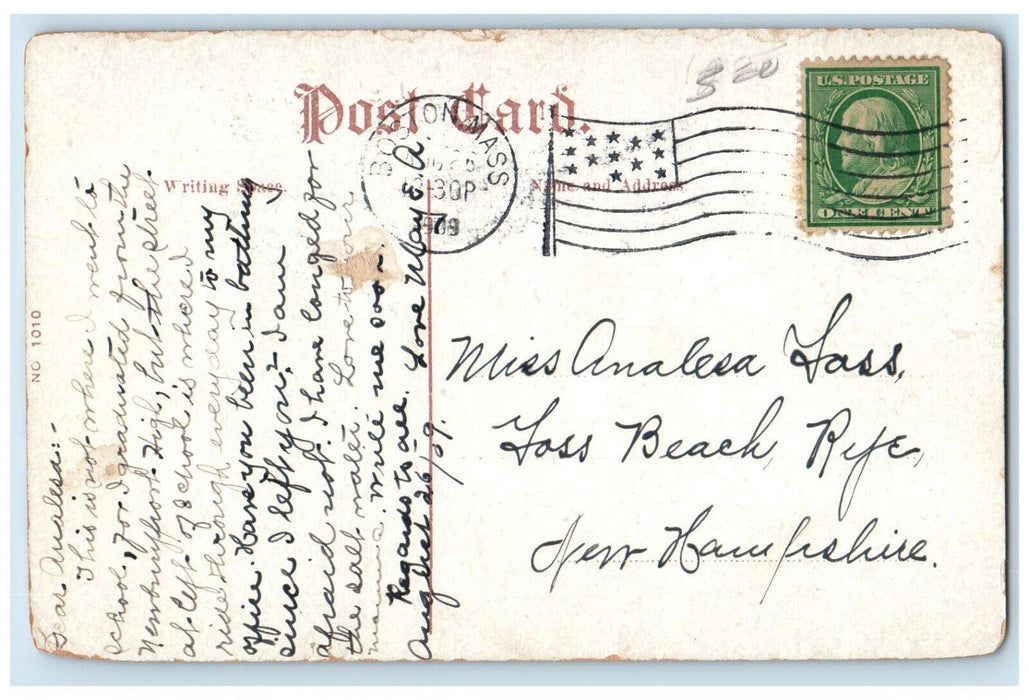 Post Card.
Writing Space.
Name and Address
BOSTON, MASS
30P
1909
U.S. POSTAGE
ONE CENT
NO 1010
Dear Analesa:-
This is not where I went to
school, for I graduated from the
Newburyport High, but the street
at left of school is where I
ride through everyday to my
office. Have you been in bathing
since I left you? I am
afraid not. I have longed for
the salt water. Love to your
mama. Write me soon.
Regards to all. Love May E. A.
August 26/09.
Miss Analesa Foss,
Foss Beach, Rye,
New Hampshire.